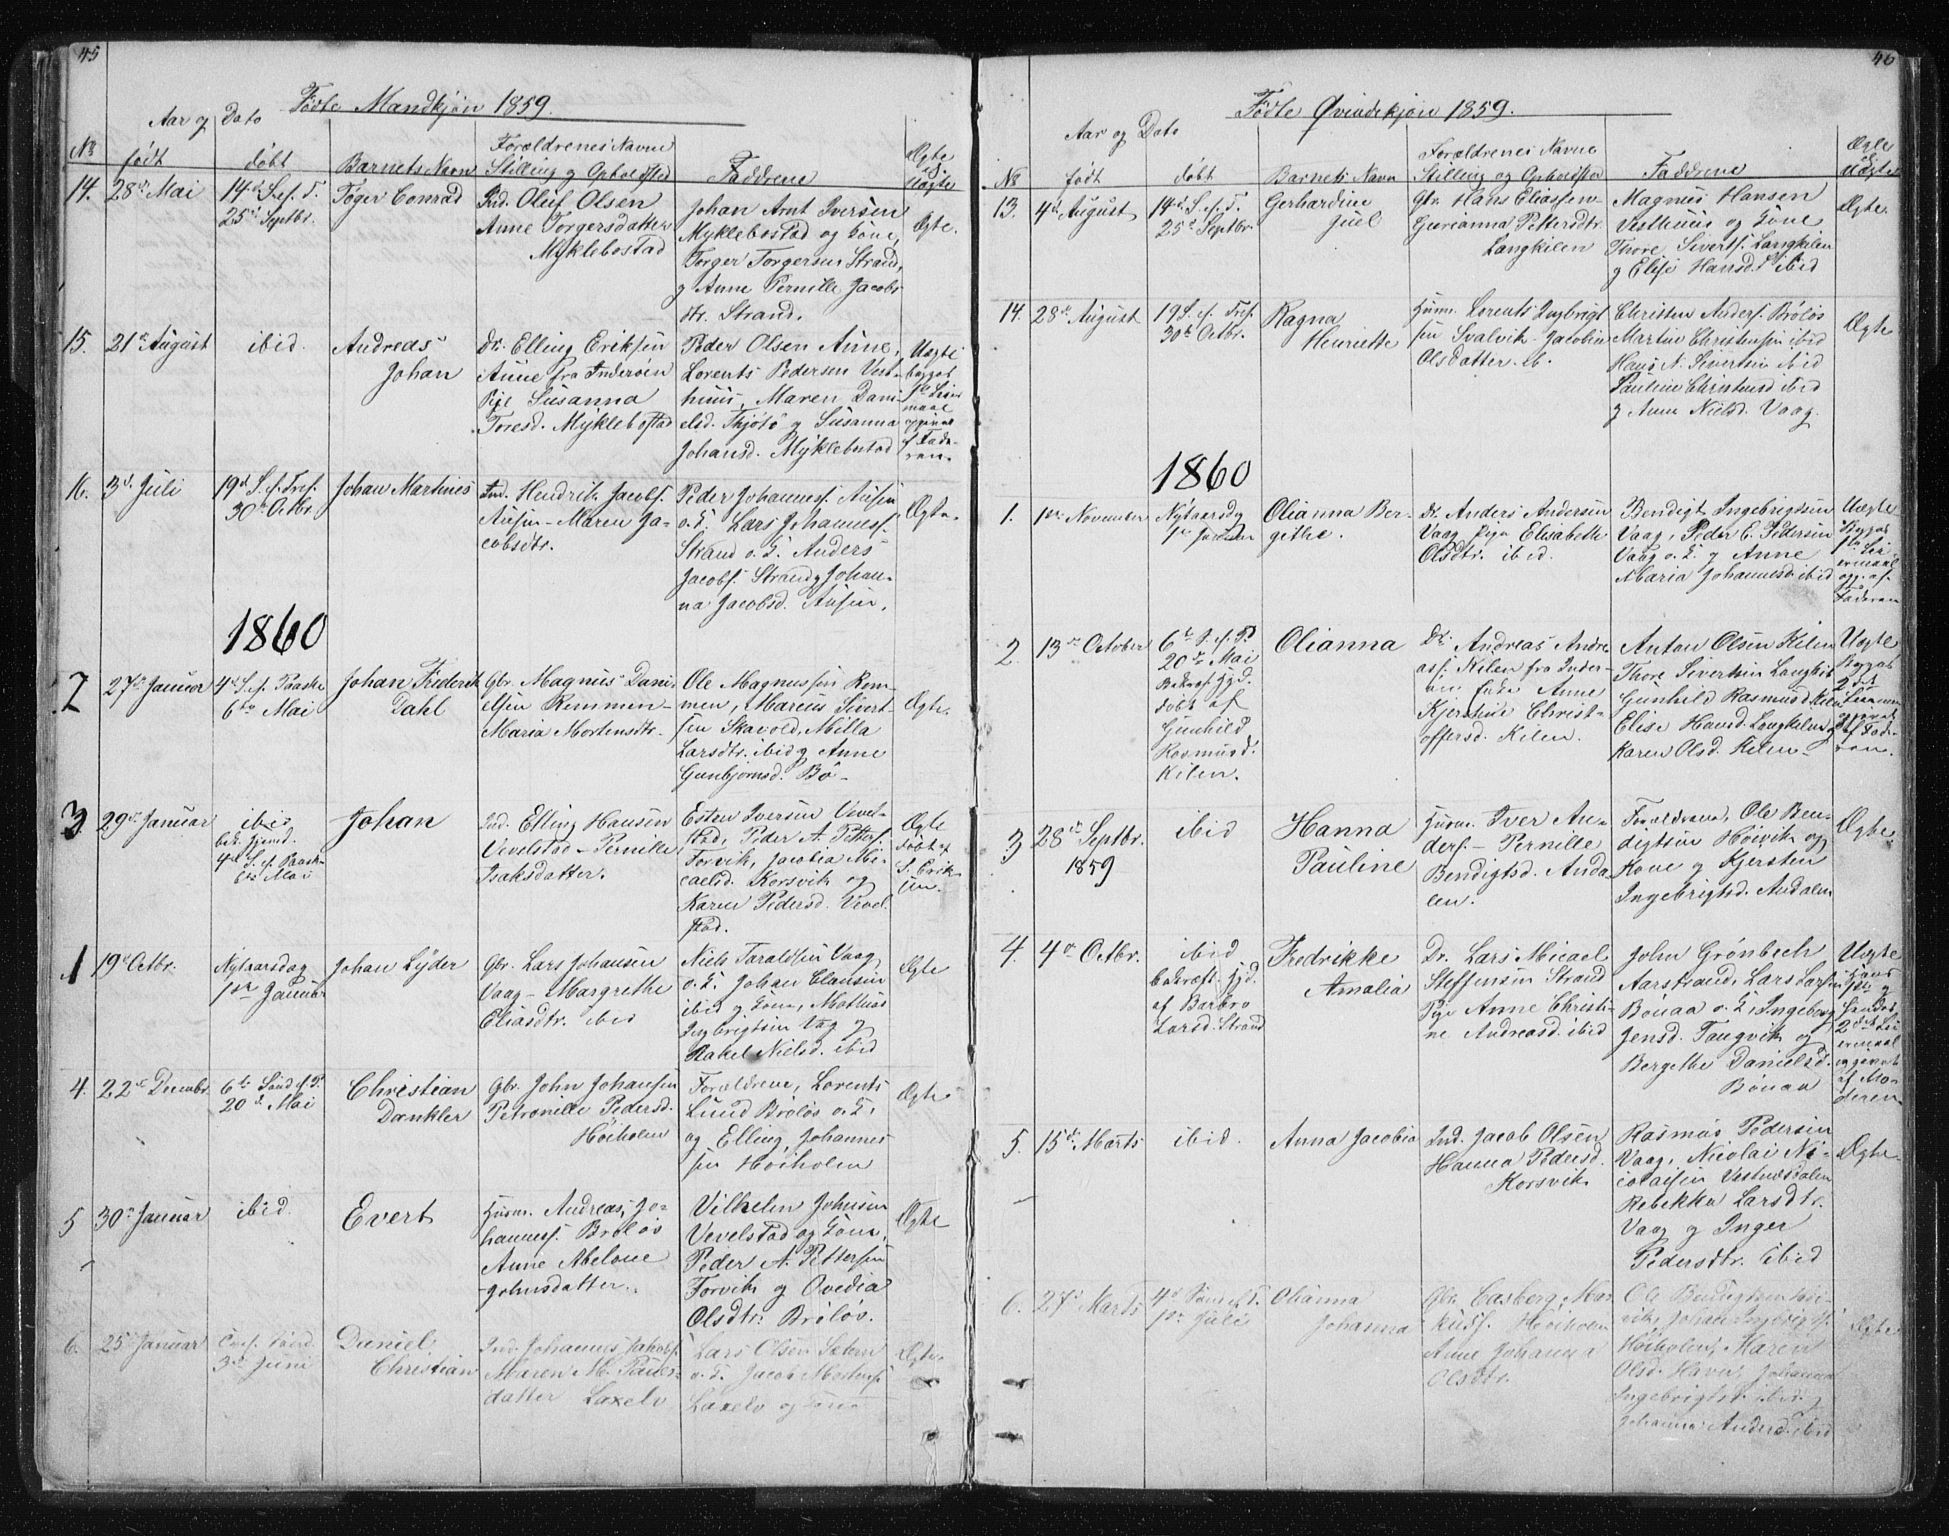 45
Fødte Mandkjøn 1859.
Aar og Dato
No
født
døbt
Barnets Navn
Forældrenes Navne
Stilling og Opholdsted
Faddrene
Ægte
Uægte
14.
28de Mai
14d S. e. f. T.
25de Septbr.
Tøger Conrad
Ind. Oluf Olsen
Anne Torgersdatter
Myklebostad
Johan Arnt Iversen
Myklebostad og Cone,
Torger Torgersen Strand,
og Anne Pernille Jacobs
dtr. Strand.
Ægte.
15.
21de August
ibid.
Andreas
Johan
Dr. Elling Eriksen
Aune fra Inderøen
Pige Susanna
Toresd. Myklebostad
Peder Olsen Aune,
Lorents Pedersen Vest-
huus, Maren Dani-
elsd. Thjøtø og Susanna
Johansd. Myklebostad
Uægte
af Fade-
ren.
16.
3d. Juli
19d. S. e. f. Tref.
30te Octbr.
Johan Martines
Ind. Hendrik Jacobs.
Ausen - Maren Ja-
cobsdtr.
Peder Johanness. Ausen
o. K. Lars Johanness.
Strand o. K. Anders
Jacobs. Strand og Johan-
na Jacobsd. Ausen.
Ægte.
1860
2
27de Januar
4d S. e. f. Paaske
6te Mai
Johan Frederik
Dahl
Gbr. Magnus Dani-
elsen Remmen -
Maria Mortensdtr.
Ole Magnussen Rem-
men, Marcus Sivert-
sen Skavold, Milla
Larsdtr. ibid og Anne
Gunbjørnsd. Bø -
Ægte.
3
29de Januar
ibid
bek. Hjemd.
4d S. e. f. Paaske
6te Mai
Johan
Ind. Elling Hansen
Vevelstad - Pernille
Isaksdatter.
Esten Iversen Vevel-
stad, Peder A. Petters.
Forvik, Jacobia Mi-
caelsd. Korsvik og
Karen Pedersd. Vevel-
stad.
Ægte
døbt af
S. Erik-
sen.
1
19de Octbr.
Nytaarsdag
1ste Januar
Johan Lyder
Gbr. Lars Johansen
Vaag - Margrethe
Eliasdtr. ibid
Niels Taraldsen Vaag
o. K. Johan Clausen
ibid og Cone, Mathias
Ingbrigtsen Vag og
Rakel Nielsd. ibid
Ægte
4.
22de Decmbr.
6te Sønd. f. P.
20de Mai
Christian
Dankler
Gbr. John Johansen
Petronille Pedersd.
Høiholm
Forældrene, Lorents
Lund Brøløs o. K.
og Elling Johannes
sen Høiholen
Ægte.
5
30te Januar
ibid.
Evert
Huusm. Andreas Jo-
hanness. Brøløs
Anne Abelone
Johnsdatter.
Vilhelm Johnsen
Vevelstad og Cone,
Peder A. Pettersen
Forvik og Ovedia
Olsdtr. Brøløs.
Ægte
6.
25de Januar
Tref. Sønd.
3de Juni
Daniel
Christian
Ind. Johannes Jakobs.
Maren M. Paals-
datter Laxelv
Lars Olsen Sætern
o. K. Jacob Mortens.
Laxelv og Cone
Ægte.
46
Fødte Qvindekjøn 1859.
Aar og Dato
No
født
døbt
Barnets Navn
Forældrenes Navne
Stilling og Opholdsted
Faddrene
Ægte
Uægte
13.
4de August
14d. S. e. f. T.
25de Septbr.
Gerhardine
Juel
Gbr. Hans Eliassen
Gurianna Pettersdtr.
Langkilen
Magnus Hansen
Vesthuus og Cone
Thore Siverts. Langkilen
og Elise Hansd. ibid
Ægte.
14.
28de August
19 S. e. f. Tref.
30te Octbr.
Ragna
Henriette
Huusm. Lorents Ingbrigt
sen Svalvik - Jacobine
Olsdatter ib.
Christen Anders. Brøløs
Martin Christensen ibid
Hans N. Sivertsen ibid
Pauline Christensd ibid
og Anne Nielsd. Vaag.
Ægte
1860
1.
1ste November
Nytaarsdag
1ste Januar
Olianna Ber-
githe.
Dr. Anders Andersen
Vaag Pige Elisabeth
Olsdtr. ibid.
Bendigt Ingebrigtsen
Vaag, Peder C. Pedersen
Vaag o. K. og Anne
Maria Johannesd. ibid
Uægte
Begges
1ste Lei-
ermaal
opg. af
Faderen
2
13de October
6te S. e. f. P.
20de Mai
Bekræf. Hjd.
døbt af
Gunhild
Rasmusd.
Kilen.
Olianna
Dr. Andreas Andre
ass. Kilen fra Inder-
øen Enke Anne
Kjerstine Christ-
offersd. Kilen.
Anton Olsen Kilen
Thore Sivertsen Langkil.
Gunhild Rasmusd. Kilen
Elise Hansd. Langkilen og
Karen Olsd. Kilen -
Uægte
Begges
2det
Leiermaal
opgivet
af Fade-
ren.
3
28de Septbr.
1859
ibid
Hanna
Pauline
Huusm. Iver An-
ders. - Pernille
Bendigtsd. Anda-
len.
Forældrene, Ole Ben-
digtsen Høivik og
Kone og Kjersten
Ingebrigtsd. Andalen
Ægte
4.
4de Octbr.
ibid
bekræft. Hjd.
af Barbro
Larsd. Strand
Fredrikke
Amalia
Dr. Lars Micael
Steffensen Strand
Pige Anne Christi-
ne Andreasd. ibid
John Grønbech
Aarstrand, Lars Larsen
Bønaa o. K. Ingeborg
Jensd. Tangvik og
Bergethe Danielsd.
Bønaa
Uægte
Hans
1ste og
Hendes
2det Lei-
ermaal
opgivet
af Mo-
deren
5.
15de Marts
ibid.
Anna Jacobia
Ind. Jacob Olsen
Hanna Pedersd.
Korsvik
Rasmus Pedersen
Vaag, Nicolai Ni-
colaisen Vesthusdalen
Rebekka Larsdtr.
Vaag og Inger
Pedersdtr. ibid
Ægte.
6.
27de Marts
4de Sønd. e. f. T.
1ste Juli
Olianna
Johanna
Gbr. Casberg Mar
kuss. Høiholm
Anne Johanna
Olsdtr.
Ole Bendigtsen Høi-
vik, Johan Ingbrigts.
Høiholm, Maren
Olsd. Havn, Johanna
Ingebrigtsd. ibid og
Johanna Andersd. ibid
Ægte